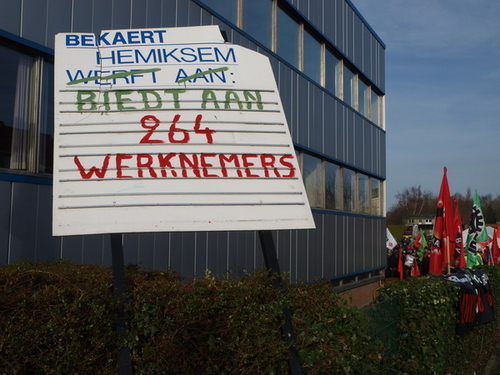 BEKAERT
HEMIKSEM
WERFT AAN:
BIEDT AAN
264
WERKNEMERS